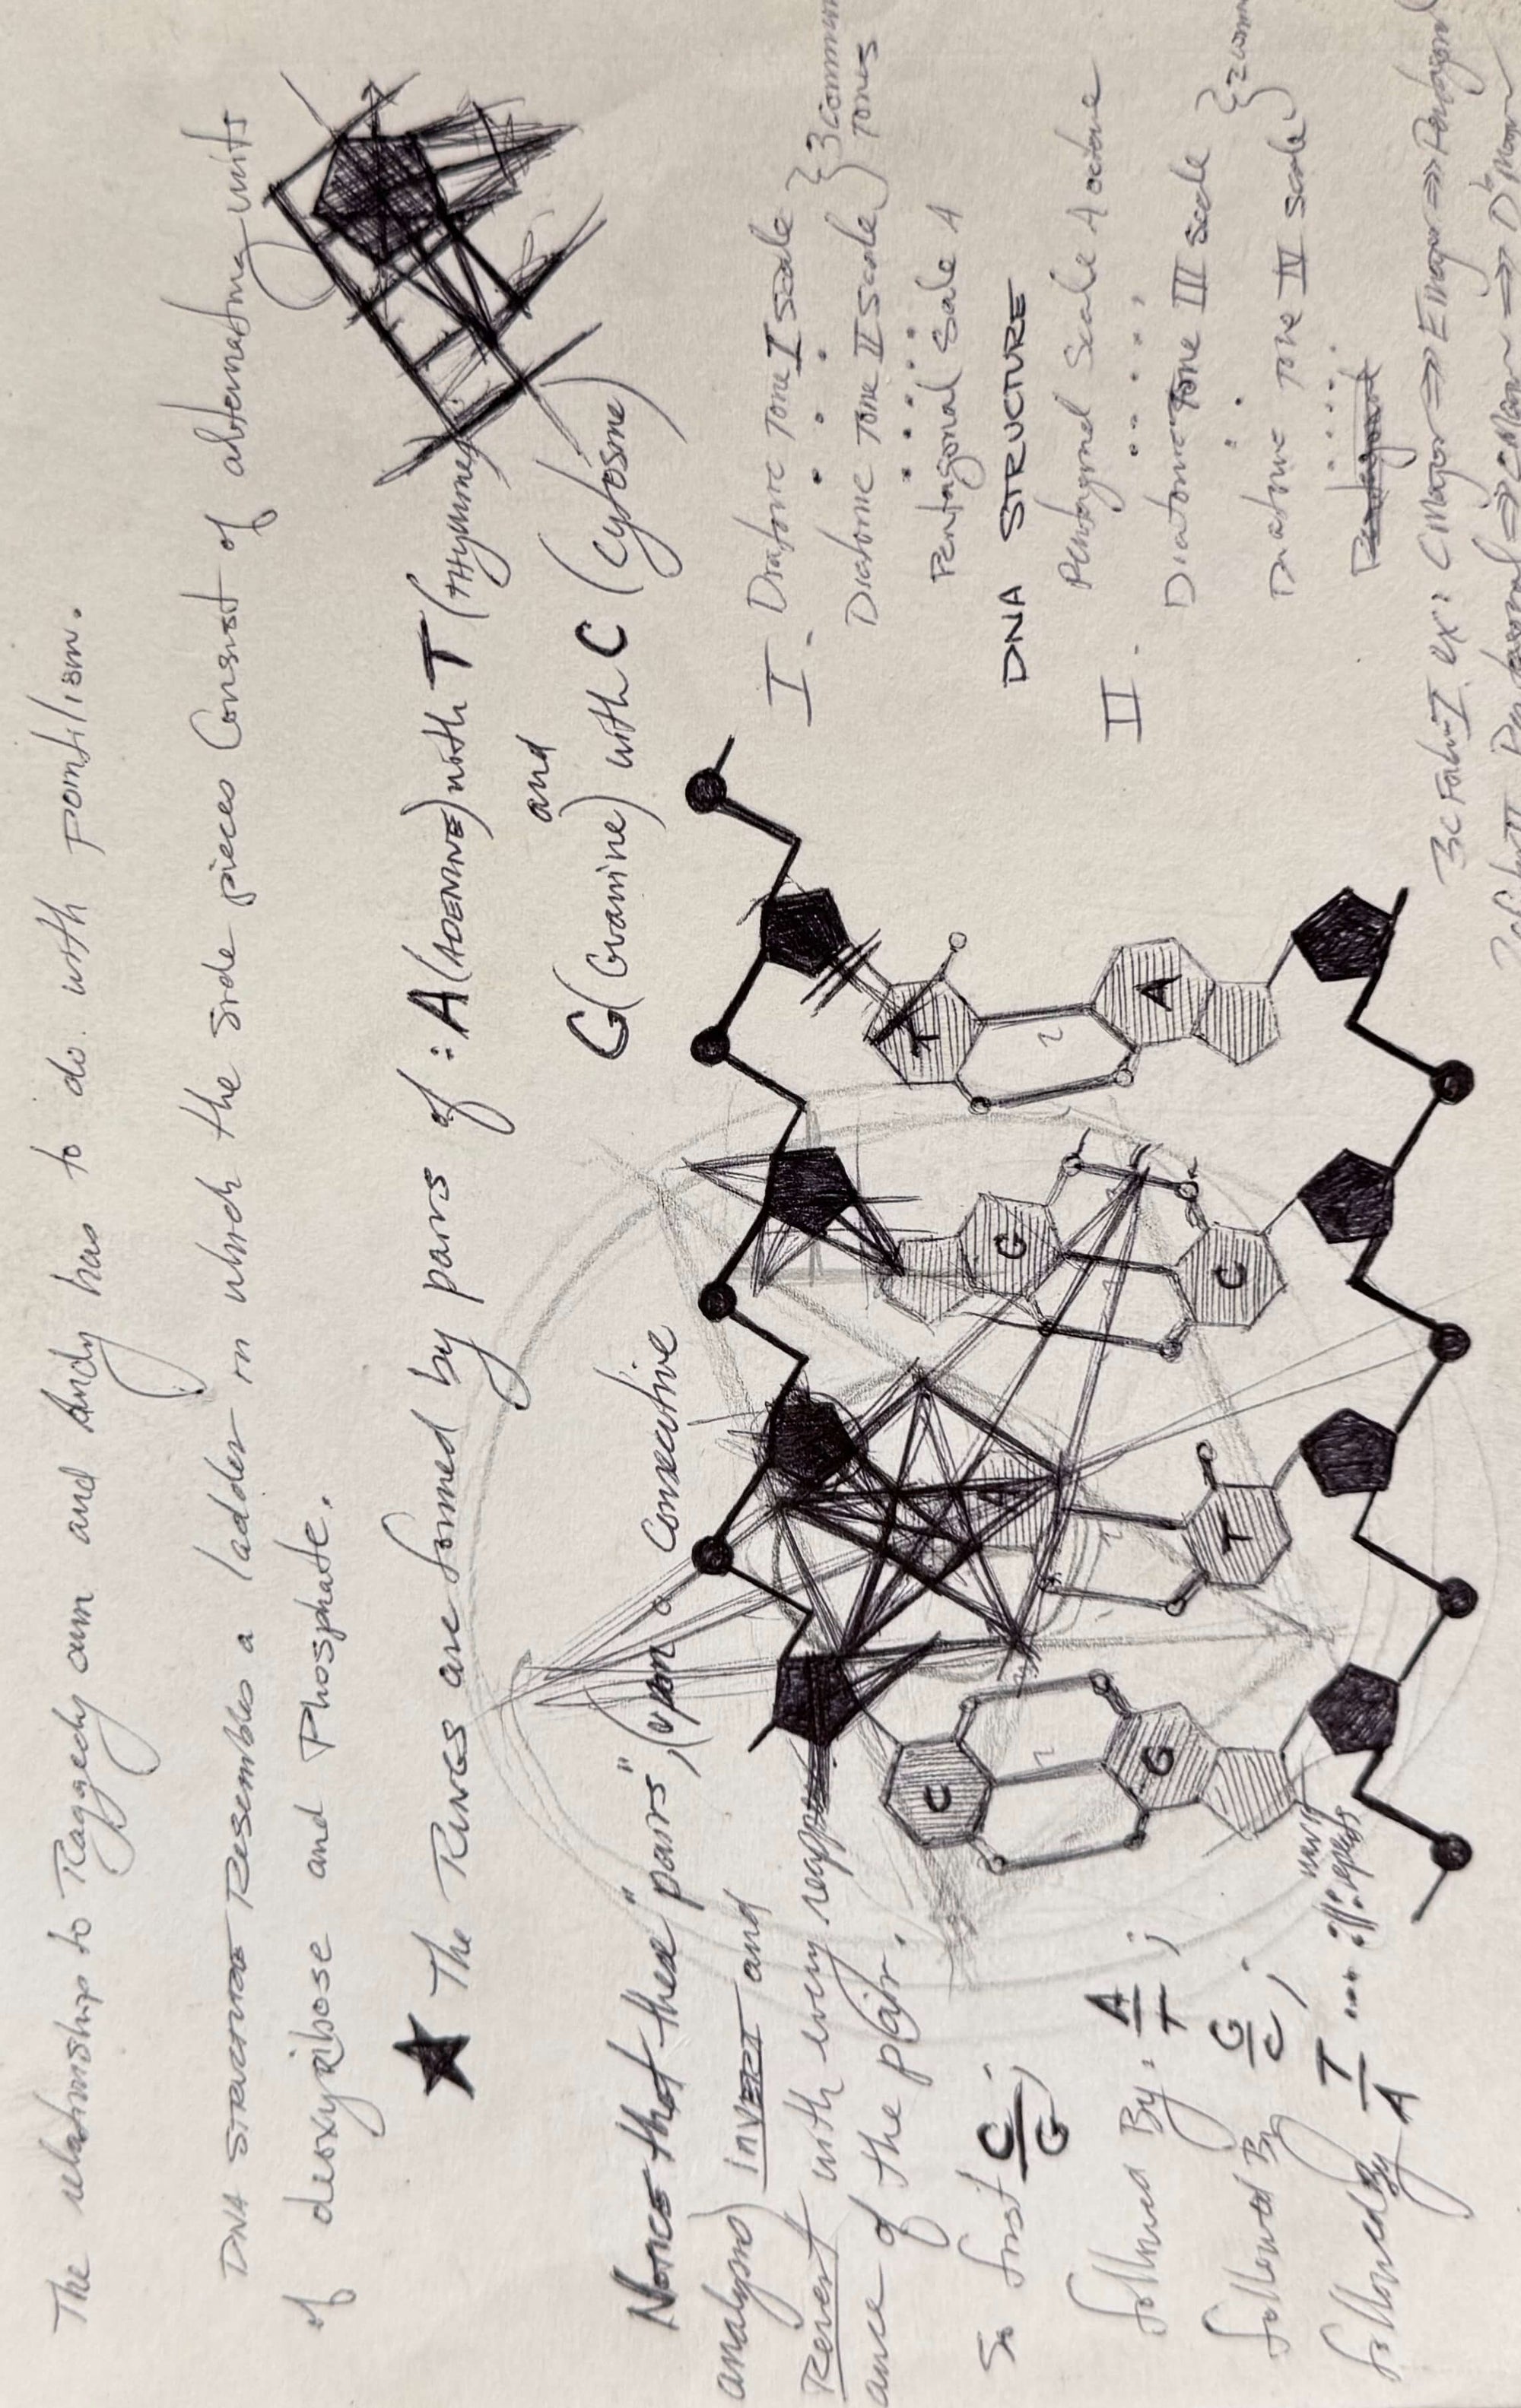 The relationship to Raggedy ann and Andy has to do with pointilism.
DNA STRUCTURE Resembles a ladder in which the side pieces Consist of alternating units
of deoxyribose and Phosphate.
★ The RUNGS are formed by pairs of: A (ADENINE) with T (THYMINE)
and
G (Guanine) with C (Cytosine)
NOTICE that these "pairs", (upon a Consecutive
analysis) INVERT and
Revert with every reappear
ance of the pair.
So first C/G;
followed By: A/T;
followed By G/C;
followed By T/A ... until
it repeats
C
G
A
T
2
G
C
T
A
2
I - Diatonic Tone I Scale } 3 Common
Diatonic Tone II Scale } Tones
Pentagonal Scale A
DNA STRUCTURE
II - Pentagonal Scale A octave
Diatonic Tone III scale
Diatonic Tone IV scale } 2 Comm
Pentagonal
ex: CMajor ⇒ EMajor ⇒ Pentagonal
⇒ CMajor ⇒ D♭Major